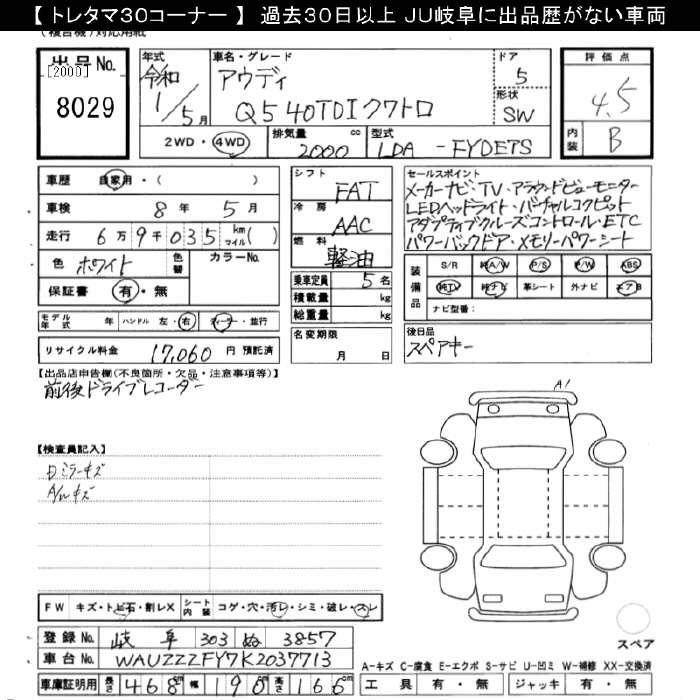 【トレタマ30コーナー】 過去30日以上 JU岐阜に出品歴がない車両
出品No.
[2000]
8029
年式
令和
1/5月
車名・グレード
アウディ
Q5 40TDIクワトロ
ドア
5
形状
SW
評価点
4.5
内装
B
2WD・4WD
排気量 cc
2000
型式
LDA - FYDETS
車歴 自家用・( )
車検 8年 5月
走行 6万9千035 km マイル( )
色 ホワイト 色替
カラーNo.
保証書 有・無
シフト
FAT
冷房
AAC
燃料
軽油
乗車定員 5名
積載量 kg
総重量 kg
名変期限
月 日
セールスポイント
メーカーナビ・TV・アラウンドビューモニター
LEDヘッドライト・バーチャルコクピット
アダプティブクルーズコントロール・ETC
パワーバックドア・メモリーパワーシート
装備品
S/R 純A/W P/S P/W ABS
純TV 純ナビ 革シート 外ナビ エアB
ナビ型番:
モデル年式 年 ハンドル 左・右 ディーラー・並行
リサイクル料金 17,060 円 預託済
後日品
スペアキー
【出品店申告欄(不良箇所・欠品・注意事項等)】
前後ドライブレコーダー
A1
【検査員記入】
ミラーキズ
A/Wキズ
FW キズ・トビ石・割レX シート内装 コゲ・穴・汚レ・シミ・破レ・スレ
スペア
登録No. 岐阜 303 ぬ 3857
車台No. WAUZZZFY7K2037713
A-キズ C-腐食 E-エクボ S-サビ U-凹ミ W-補修 XX-交換済
車庫証明用 長さ 468cm 幅 190cm 高さ 166cm
工具 有・無 ジャッキ 有・無